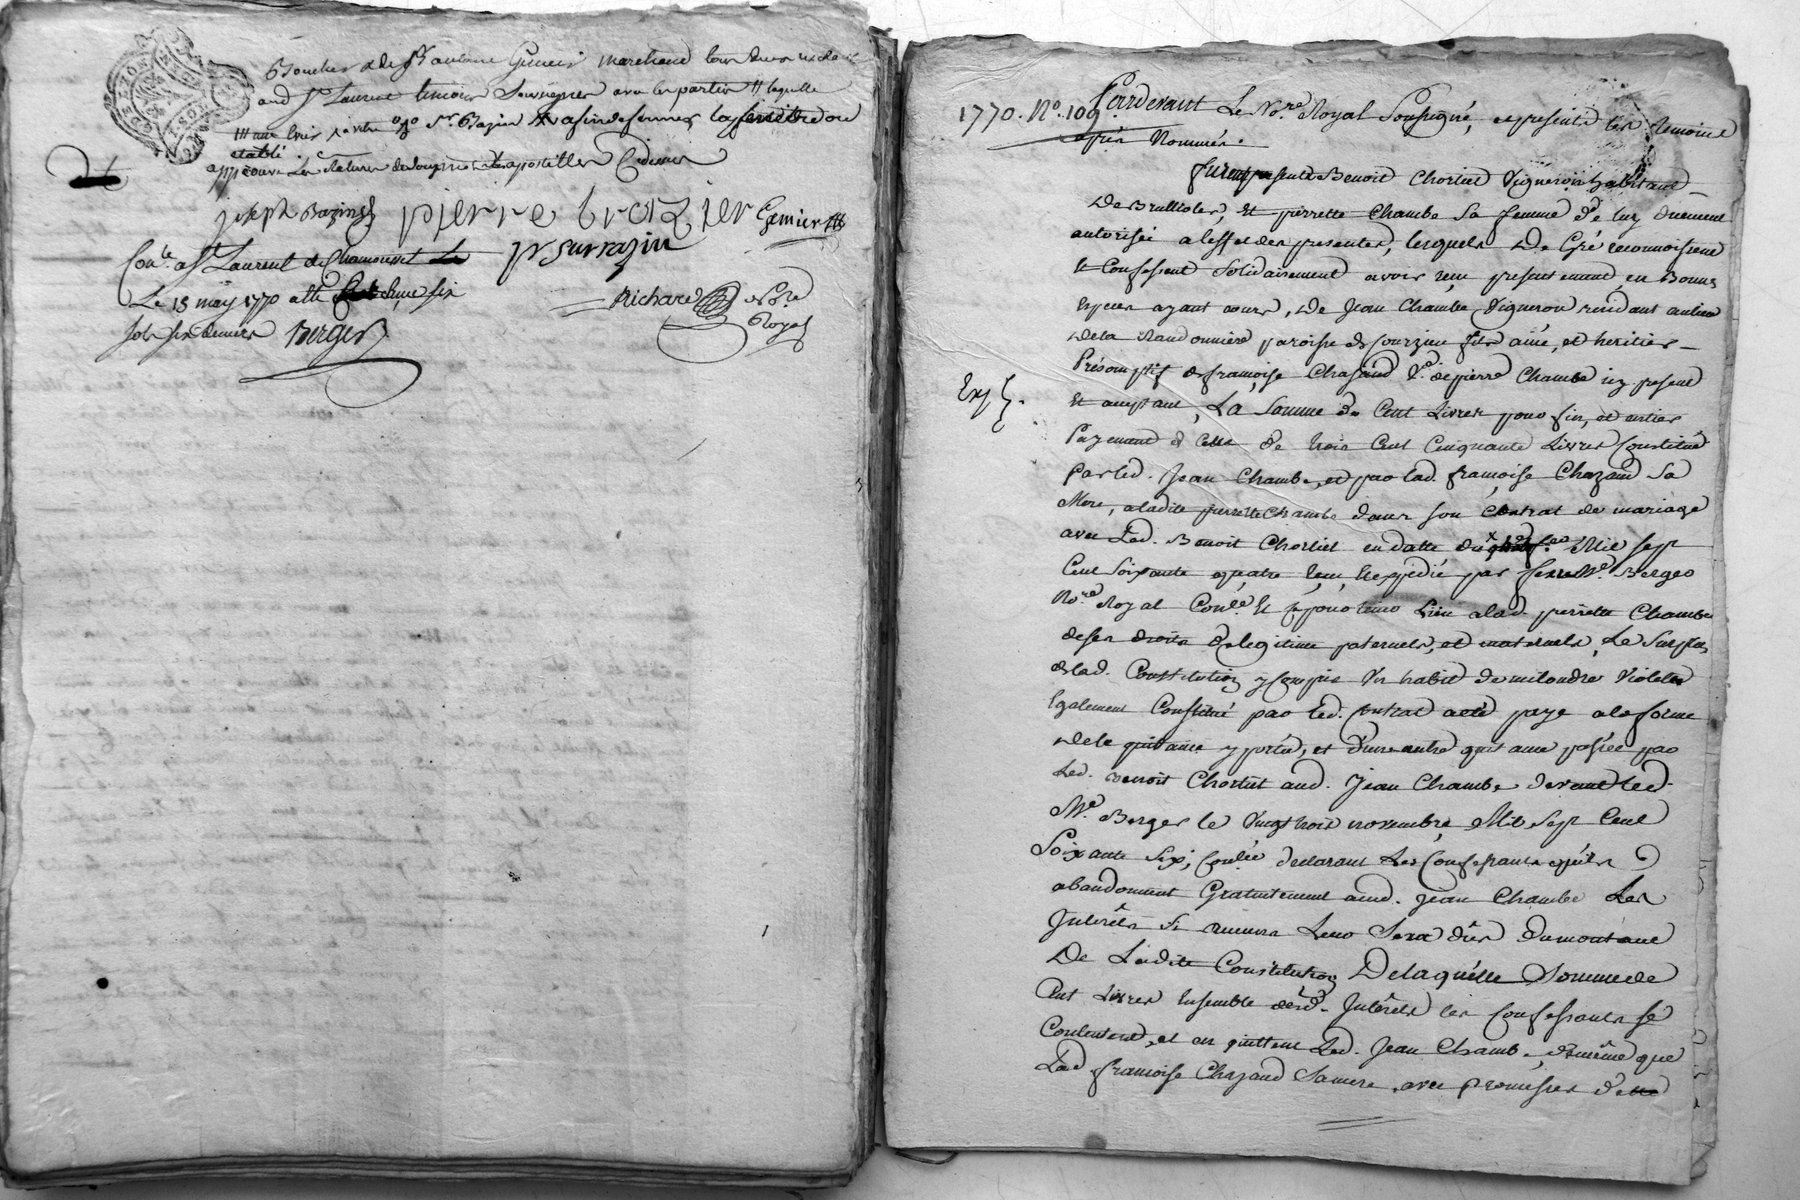 Boucher & de Sr antoine Gimier marchand
aud St Laurent temoins Soussignes avec les parties # laquelle
### une livre
etablie
approuvé Les ratures
joseph Bazin pierre brozier Gimier
Conlé a St Laurent de Chamousset Le pr sarrazin
Le 15 may 1770 a the six
sols six deniers Berger
Richard Nore
Royal
1770. No. 109.
Pardevant Le Nore. Royal Soussigné, et presents les temoins
après Nommés.
furent presents Benoit Chorliet Vigneron habitant
de Brullioles, Et pierrette Chambe Sa femme de luy duëment
autorisée a l'effet des presentes, lesquels De Gré reconnoissent
Et Confessent Solidairement avoir reçu presentement, en Bonnes
Especes ayant cours, De Jean Chambe Vigneron residant au lieu
de la Randonniere paroisse de Courzieu fils ainé, et heritier
Présomptif de françoise Chazaud Ve. de pierre Chambe icy present
Et acceptant, La Somme de Cent Livres pour fin, et entier
Payement de Celle de trois Cent Cinquante Livres Constitué
Par led. Jean Chambe, et par lad. françoise Chazaud Sa
Mere, a ladite pierrette Chambe dans son Contrat de mariage
avec Led. Benoit Chorliet en datte du Mil sept
Cent Soixante quatre reçu, Et expedié par Me. Berger
No.re Royal Conlé. Et pour tenir Lieu a lad. pierrette Chambe
de ses droits de legitime paternels, et maternels, Le Surplus
de lad. Constitution y compris Un habit de Violet
Egalement Constitué par led. Contrat a été payé a la forme
de la quittance y portée, et d'une autre quittance passée par
Led. Benoit Chorliet aud. Jean Chambe devant led.
Me. Berger le Vingt trois novembre Mil Sept Cent
Soixante Six, Conlée declarant Les Confessants qu'ils
abandonnent Gratuitement aud. Jean Chambe Les
Interêts Si aucuns Leur Sera dûs du montant
De Ladite Constitution De laquelle Somme de
Cent Livres Ensemble desd. Interêts les Confessants se
Contentent, et en quittent Led. Jean Chambe, de même que
Lad françoise Chazaud Sa mere, avec promesses de ne
Exp.